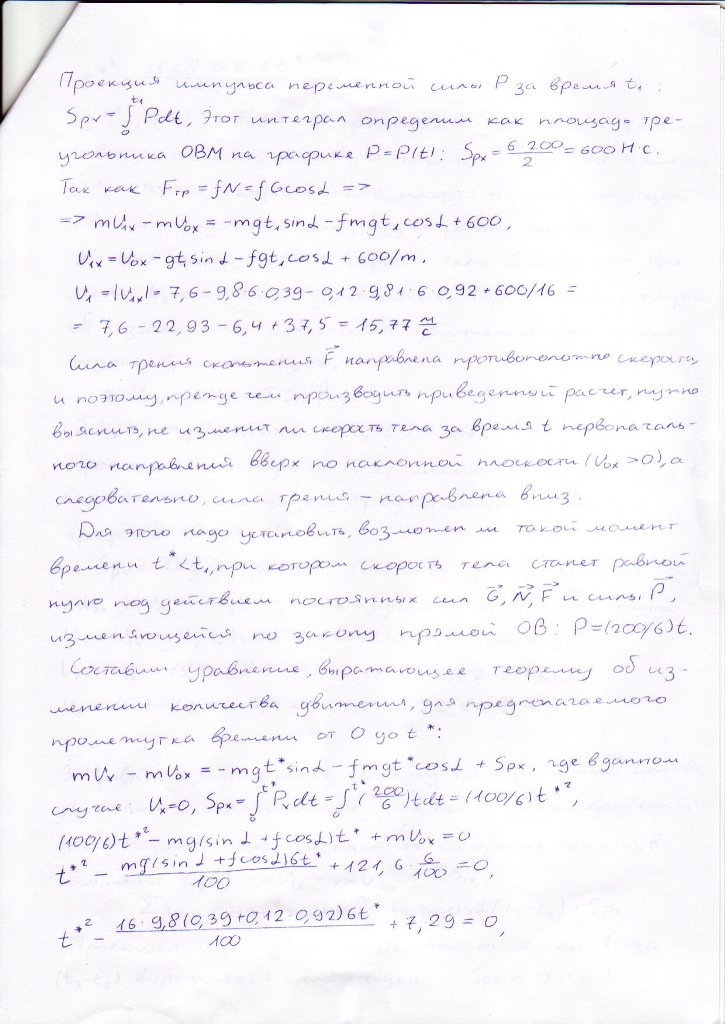 Проекция импульса переменной силы P за время t₁:
Sₚₓ = ∫₀^t₁ Pdt, Этот интеграл определим как площадь тре-
угольника OBM на графике P=P(t): Sₚₓ = 6·200/2 = 600 Н·с.
Так как Fтр = fN = fGcosα =>
=> mU₁ₓ – mU₀ₓ = -mgt₁sinα – fmgt₁cosα + 600,
U₁ₓ = U₀ₓ – gt₁sinα – fgt₁cosα + 600/m.
U₁ = |U₁ₓ| = 7,6 – 9,8·6·0,39 – 0,12·9,81·6·0,92 + 600/16 =
= 7,6 – 22,93 – 6,4 + 37,5 = 15,77 м/с
Сила трения скольжения F⃗ направлена противоположно скорости,
и поэтому, прежде чем производить приведенный расчет, нужно
выяснить, не изменит ли скорость тела за время t первоначаль-
ного направления вверх по наклонной плоскости (U₀ₓ >0), а
следовательно, сила трения – направлена вниз.
Для этого надо установить, возможен ли такой момент
времени t*<t₁, при котором скорость тела станет равной
нулю под действием постоянных сил G⃗, N⃗, F⃗ и силы P⃗,
изменяющейся по закону прямой OB: P=(200/6)t.
Составим уравнение, выражающее теорему об из-
менении количества движения, для предполагаемого
промежутка времени от 0 до t*:
mUₓ – mU₀ₓ = -mgt*sinα – fmgt*cosα + Sₚₓ, где в данном
случае: Uₓ=0, Sₚₓ = ∫₀^t* Pₓdt = ∫₀^t* (200/6)tdt = (100/6)t*²,
(100/6)t*² – mg(sinα + fcosα)t* + mU₀ₓ = 0
t*² – mg(sinα + fcosα)6t*/100 + 121,6·6/100 = 0,
t*² – 16·9,8(0,39+0,12·0,92)6t*/100 + 7,29 = 0,